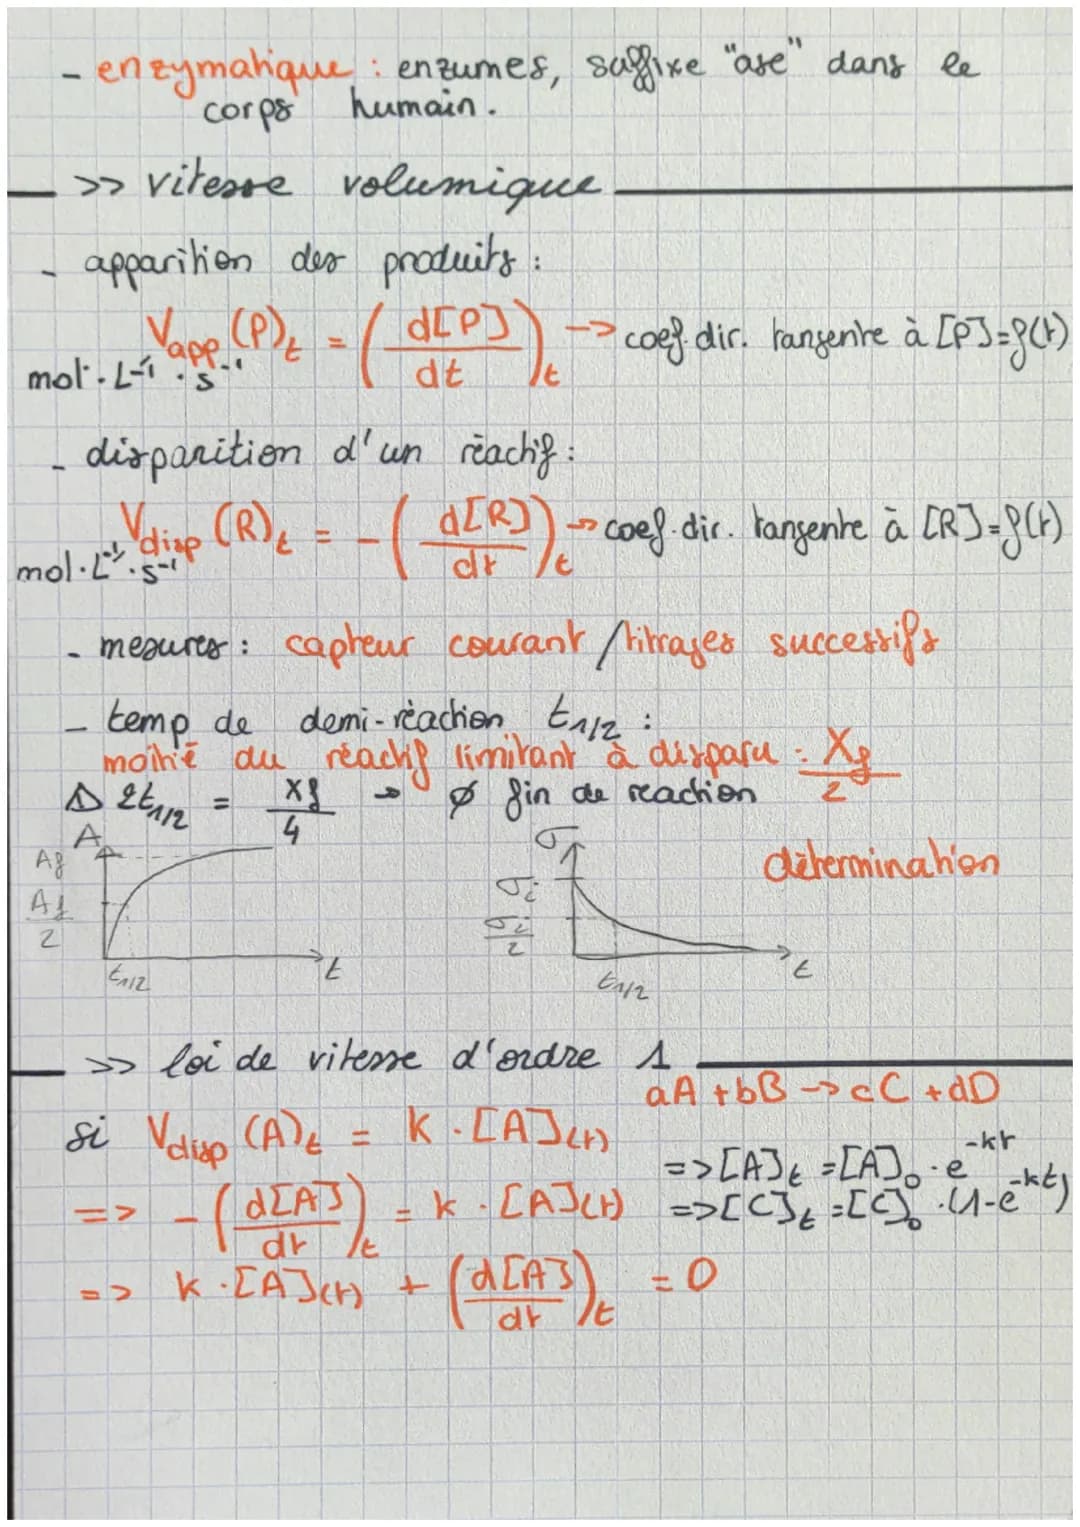 - enzymatique : enzumes, suffixe "ase" dans le
corps humain.
>> vitesse volumique
- apparition des produits :
Vapp (P)t = (d[P]/dt)t -> coef. dir. tangente à [P]=f(t)
mol·L⁻¹·s⁻¹
- disparition d'un réactif :
Vdisp (R)t = -(d[R]/dt)t -> coef. dir. tangente à [R]=f(t)
mol·L⁻¹·s⁻¹
- mesures : capteur courant / titrages successifs
- temp de demi-réaction t1/2 :
moitié du réactif limitant à disparu : Xf/2
⚠ 2t1/2 = xf/4 -> ∅ fin de reaction
A
Af
Af/2
t1/2
t
σ
σi
σi/2
t1/2
t
détermination
>> loi de vitesse d'ordre 1
aA + bB -> cC + dD
si Vdisp (A)t = k · [A](t)
=> [A]t = [A]0 · e^-kt
=> -(d[A]/dt)t = k · [A](t)
=> [C]t = [C]0 · (1-e^-kt)
=> k · [A](t) + (d[A]/dt)t = 0